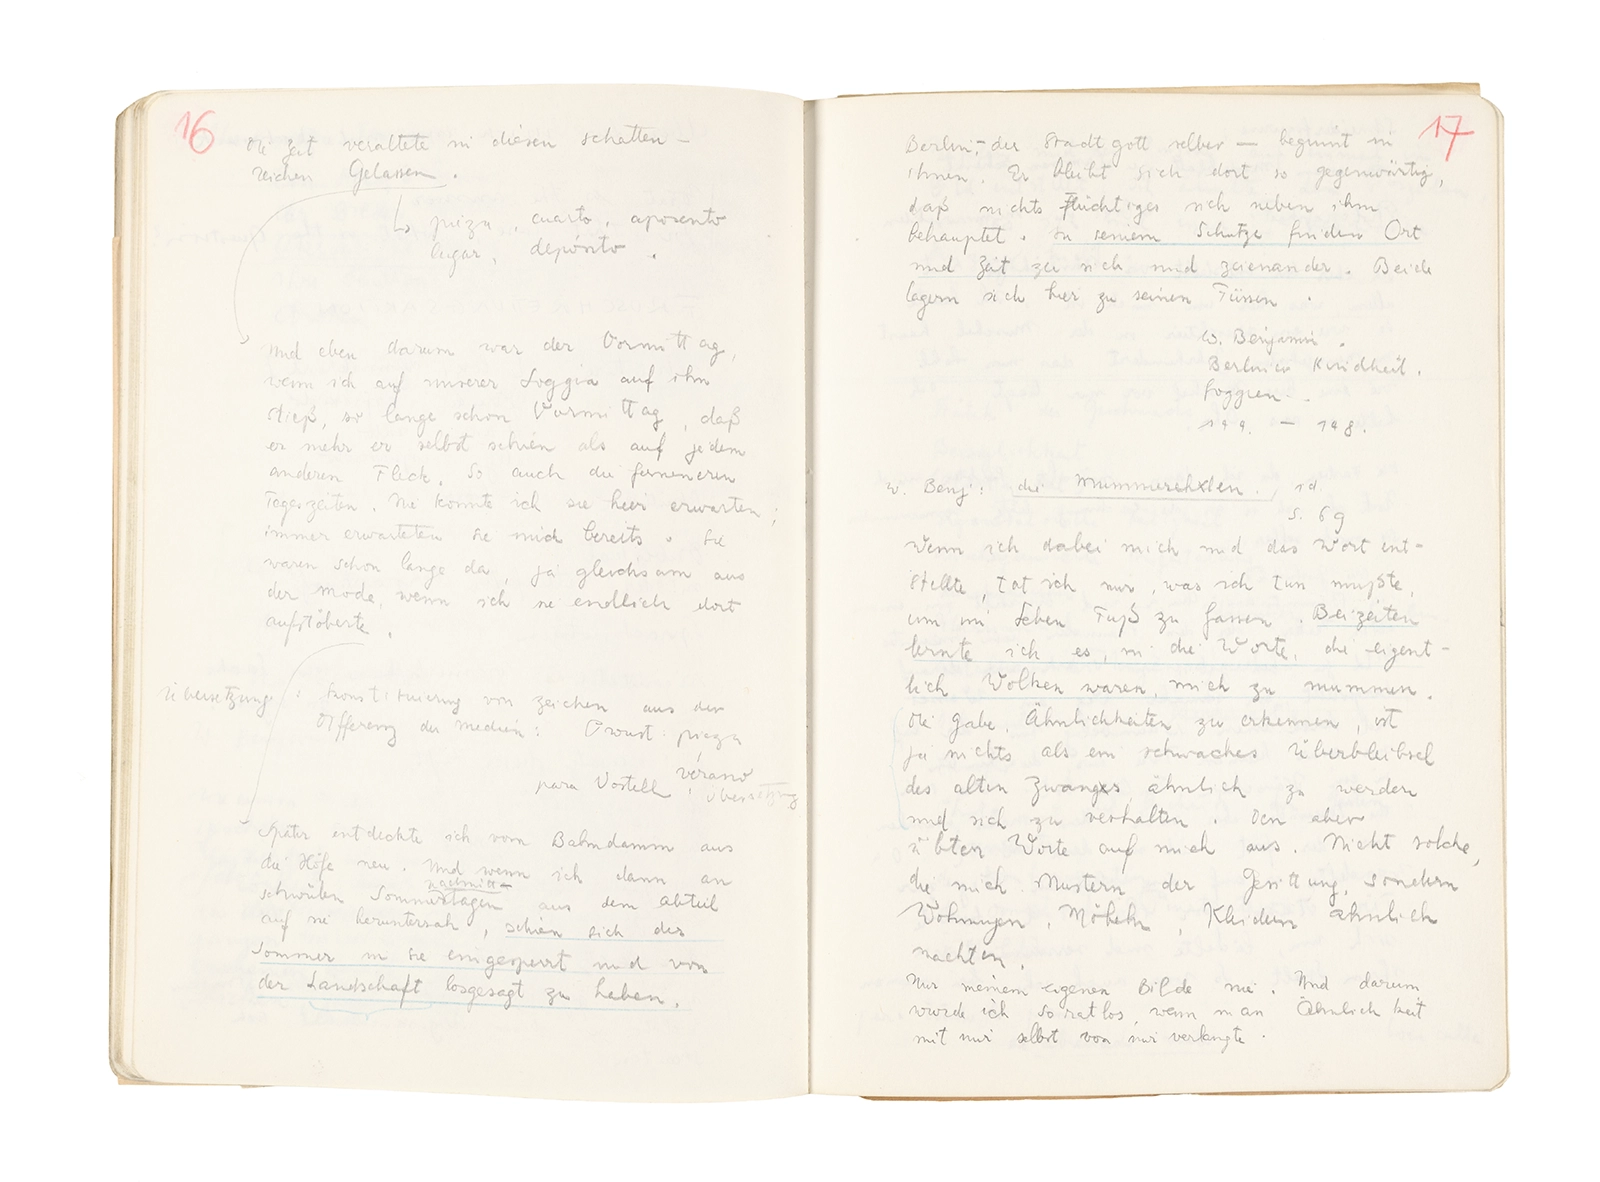 16
die Zeit veraltete in diesen schatten-
reichen Gelassen.
↳ pieza, cuarto, aposento
lugar, depósito.
Und eben darum war der Vormittag,
wenn ich auf unserer Loggia auf ihn
stieß, so lange schon Vormittag, daß
er mehr er selbst schien als auf jedem
anderen Fleck. So auch die ferneren
Tageszeiten. Nie konnte ich sie hier erwarten;
immer erwarteten sie mich bereits. Sie
waren schon lange da, ja gleichsam aus
der Mode, wenn ich sie endlich dort
aufstöberte.
Übersetzung: Konstituierung von zeichen aus der
Differenz der medien: Proust: pieza
verano
para Vostell, Übersetzung
Später entdeckte ich vom Bahndamm aus
die Höfe neu. Und wenn ich dann an
nachmit-
schwülen Sommertagen aus dem abteil
auf sie heruntersah, schien sich der
Sommer in sie eingesperrt und von
der Landschaft losgesagt zu haben.
17
Berlin,- der Stadtgott selber — beginnt in
ihnen. Er bleibt sich dort so gegenwärtig,
daß nichts Flüchtiges sich neben ihm
behauptet. In seinem Schutze finden Ort
und Zeit zu sich und zueinander. Beide
lagern sich hier zu seinen Füssen.
W. Benjamin.
Berliner Kindheit.
Loggien.
- 148.
W. Benj: die Mummerehlen, id.
S. 69
Wenn ich dabei mich und das Wort ent-
stellte, tat ich nur, was ich tun mußte,
um im Leben Fuß zu fassen. Beizeiten
lernte ich es, in die Worte, die eigent-
lich Wolken waren, mich zu mummen.
Die Gabe, Ähnlichkeiten zu erkennen, ist
ja nichts als ein schwaches Überbleibsel
des alten Zwanges, ähnlich zu werden
und sich zu verhalten. Den aber
übten Worte auf mich aus. Nicht solche,
die mich Mustern der Gesittung, sondern
Wohnungen, Möbeln, Kleidern ähnlich
machten.
Nur meinem eigenen Bilde nie. Und darum
wurde ich so ratlos, wenn man Ähnlichkeit
mit mir selbst von mir verlangte.